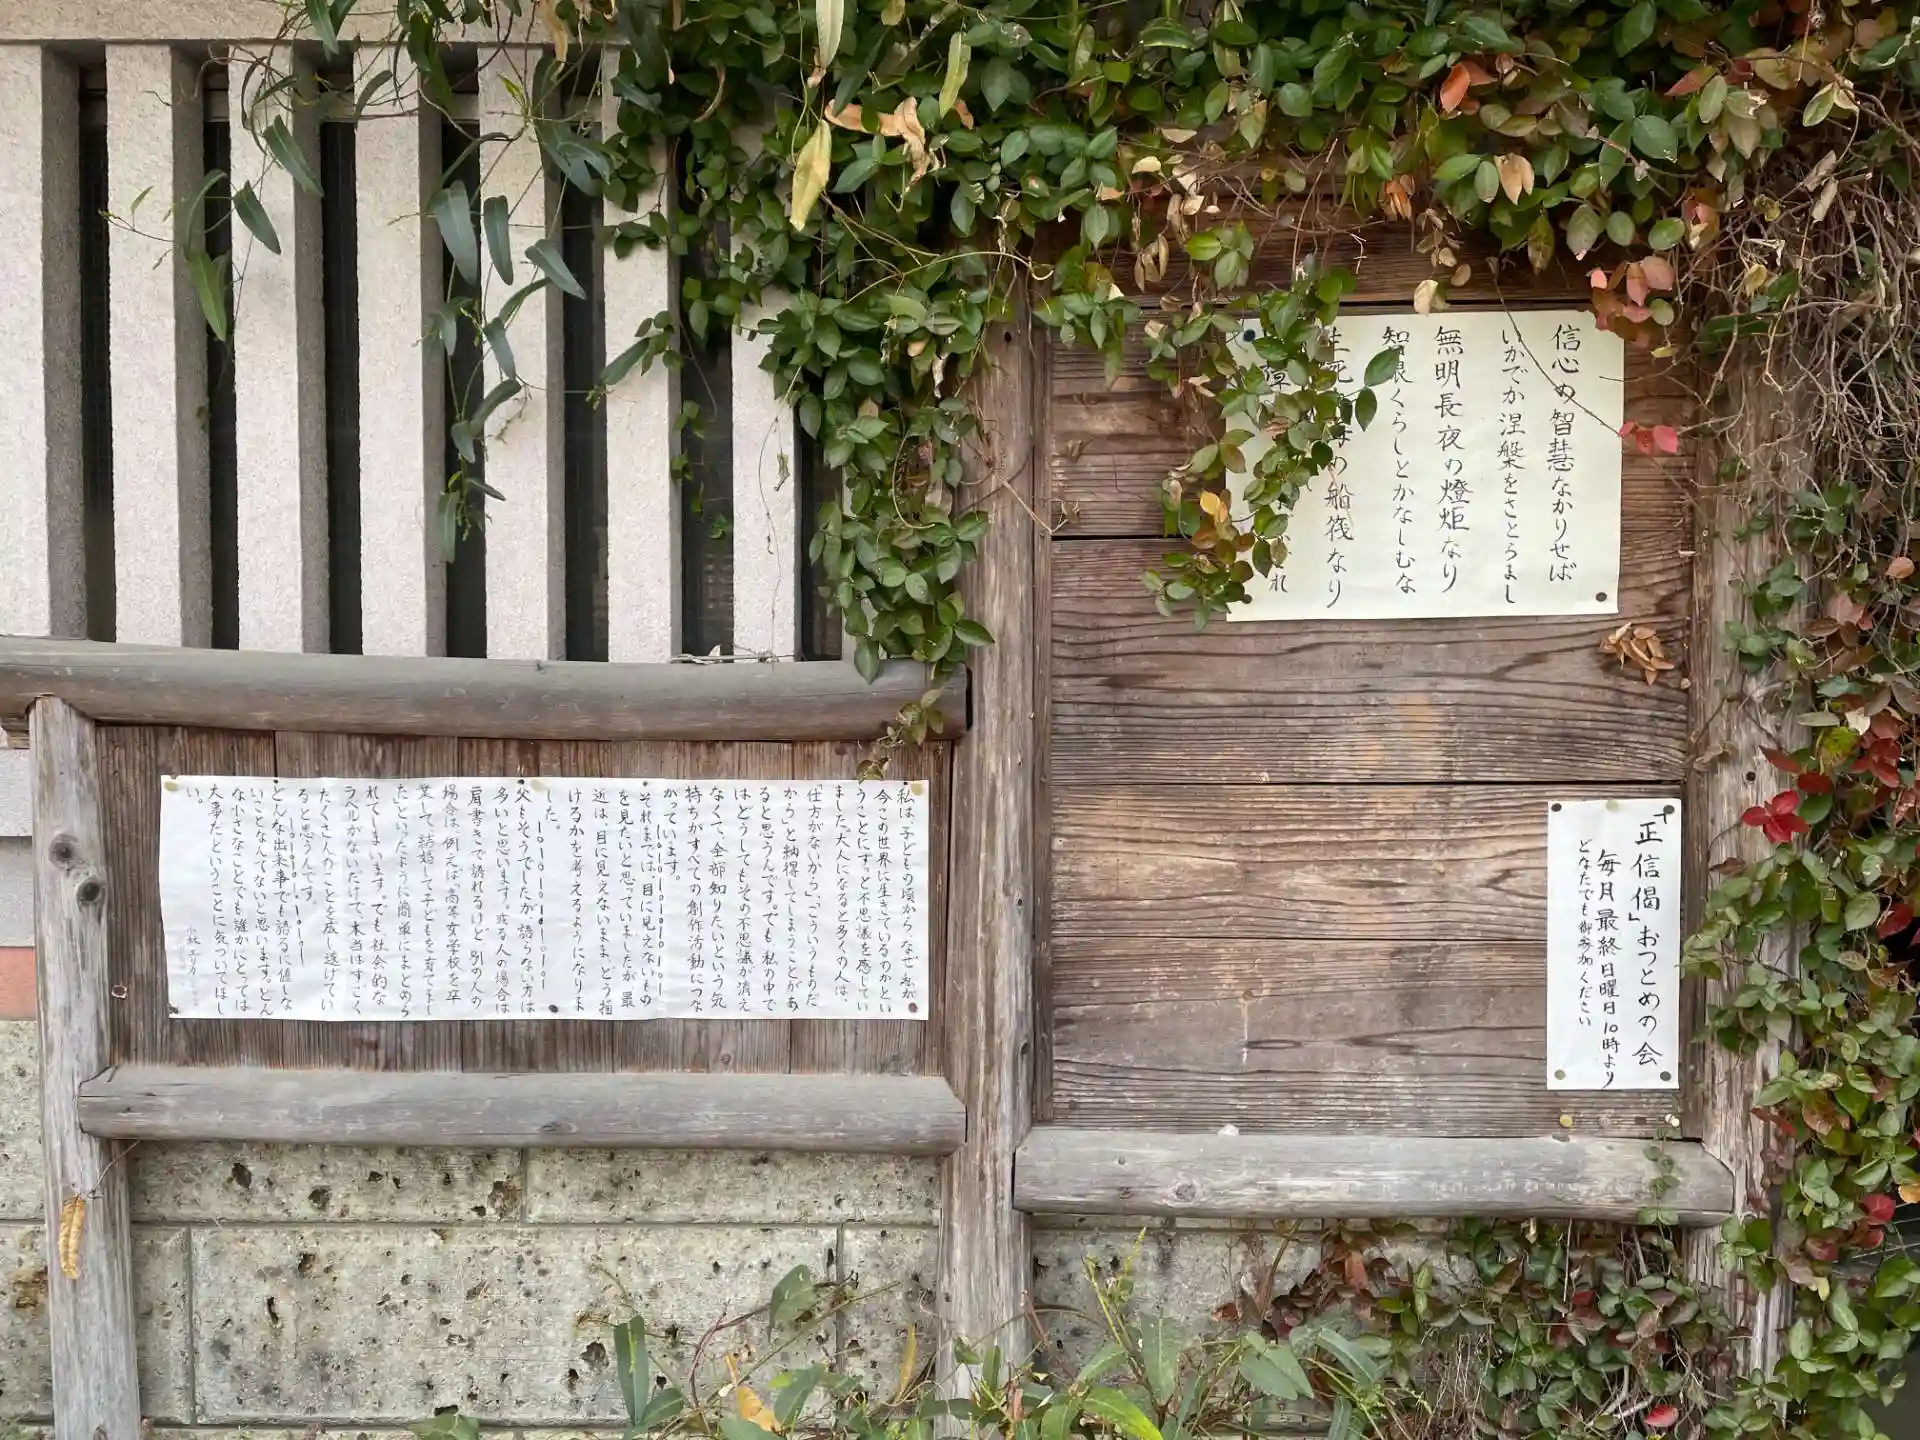 信心の智慧なかりせば
いかでか涅槃をさとらまし
無明長夜の燈炬なり
智眼くらしとかなしむな
生死 の船筏なり
障 れ
「正信偈」おつとめの会
毎月最終日曜日10時より
どなたでも御参加ください
私は、子どもの頃から、なぜ私が
今この世界に生きているのかとい
うことにずっと不思議を感じてい
ました。大人になると多くの人は、
「仕方がないから」「こういうものだ
から」と納得してしまうことがあ
ると思うんです。でも、私の中で
はどうしてもその不思議が消え
なくて、全部知りたいという気
持ちがすべての創作活動につな
がっています。
それまでは、目に見えないもの
を見たいと思っていましたが、最
近は、目に見えないまま、どう描
けるかを考えるようになりま
した。
父もそうでしたが、語らない方は
多いと思います。或る人の場合は
肩書きで語れるけど、別の人の
場合は、例えば「高等女学校を卒
業して、結婚して子どもを育てまし
た」といったように簡単にまとめら
れてしまいます。でも、社会的な
ラベルがないだけで、本当はすごく
たくさんのことを成し遂げてい
ると思うんです。
どんな出来事でも語るに値しな
いことなんてないと思います。どん
な小さなことでも誰かにとっては
大事だということに気づいてほし
い。
小林エリカ